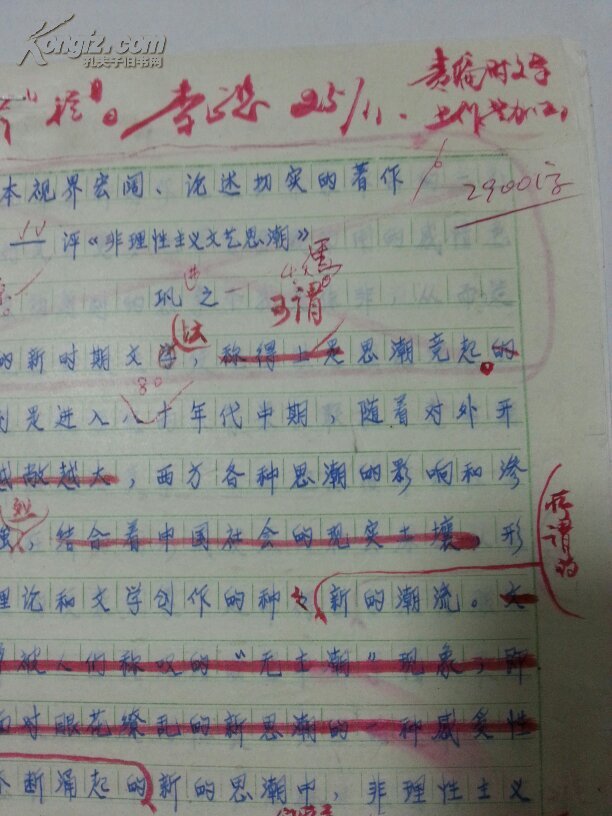 Kongfz.com
孔夫子旧书网
责编时文学
25/11.
2900字
本视界宏阔、论述切实的著作
评《非理性主义文艺思潮》
巩之一
可谓
的新时期文学，称得上是思潮竞起。的
坛
80
是进入八十年代中期，随着对外开
越敞越大，西方各种思潮的影响和渗
结合着中国社会的现实土壤。形
理论和文学创作的种之新的潮流。文
被人们称叹的“无主潮”现象，即
面对眼花缭乱的新思潮的一种感受性
不断涌起的新的思潮中，非理性主义